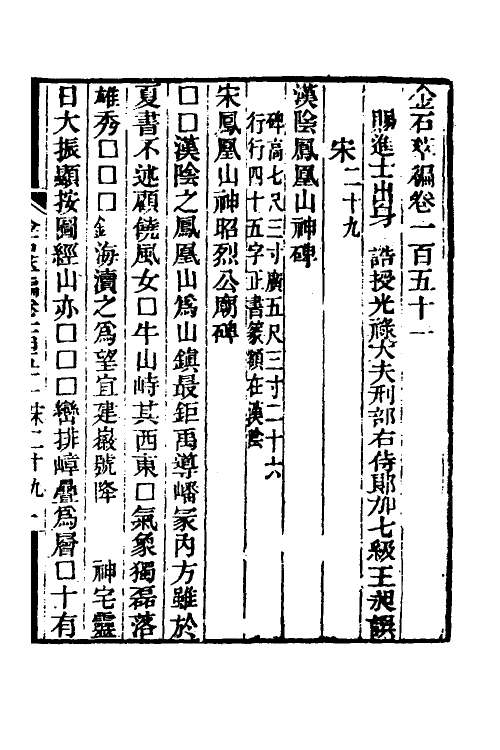 金石萃編卷一百五十一
賜進士出身 誥授光祿大夫刑部右侍郎加七級王昶譔
宋二十九
漢陰鳳凰山神碑
碑高七尺三寸廣五尺三寸二十六
行行四十五字正書篆額在漢陰
宋鳳凰山神昭烈公廟碑
□□漢陰之鳳凰山爲山鎮最鉅禹導嶓冢內方雖於
夏書不述顧饒風女□牛山峙其西東□氣象獨磊落
雄秀□□□鉦海瀆之爲望宜建嶽號降 神宅靈
日大振顯按圖經山亦□□□巒排嶂疊爲層□十有
金石萃編卷一百五十一 宋二十九 一